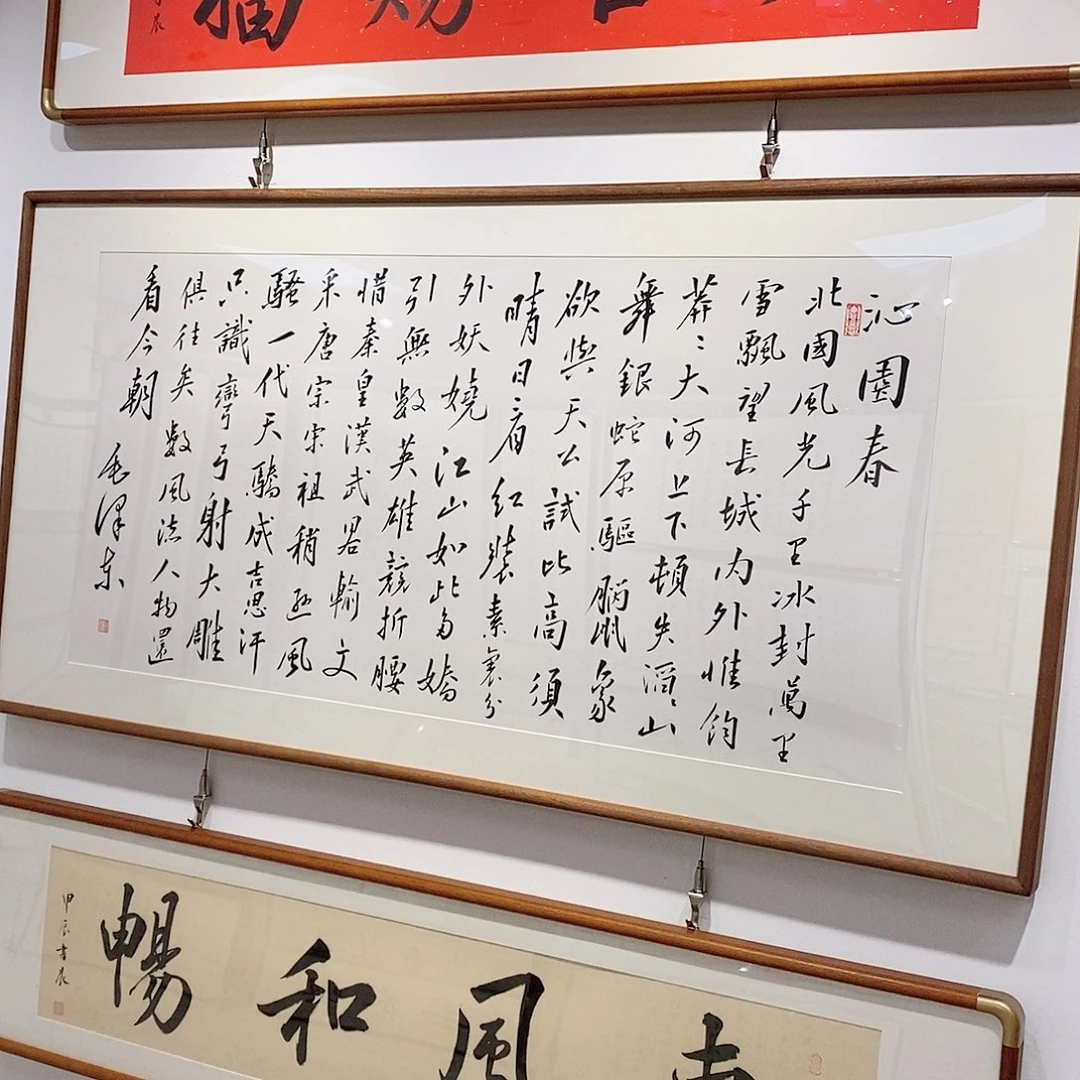 賜福
沁園春
北國風光千里冰封萬里
雪飄望長城內外惟餘
莽〻大河上下頓失滔〻山
舞銀蛇原驅臘象
欲與天公試比高須
晴日看紅裝素裹分
外妖嬈江山如此多嬌
引無數英雄競折腰
惜秦皇漢武畧輸文
采唐宗宋祖稍遜風
騷一代天驕成吉思汗
只識彎弓射大雕
俱往矣數風流人物還
看今朝
毛澤東
風和暢
甲辰書晨